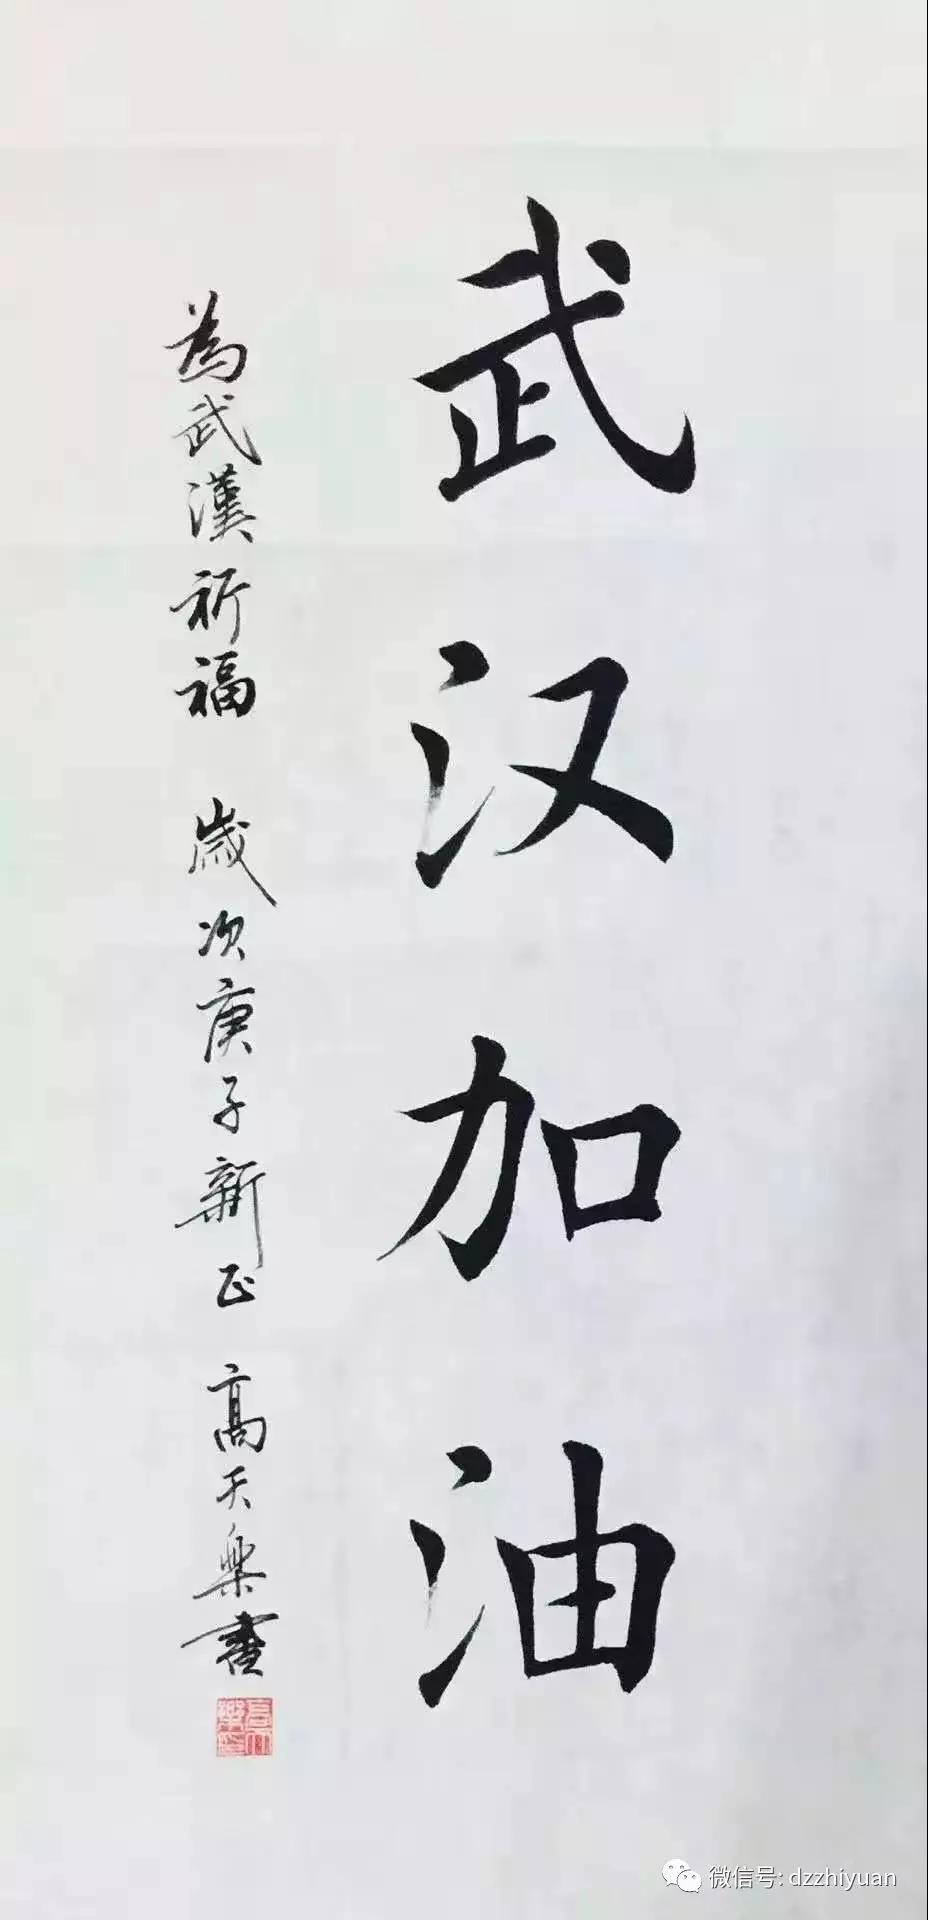 武汉加油
為武漢祈福 歲次庚子新正 高天樂書
微信号: dzzhiyuan